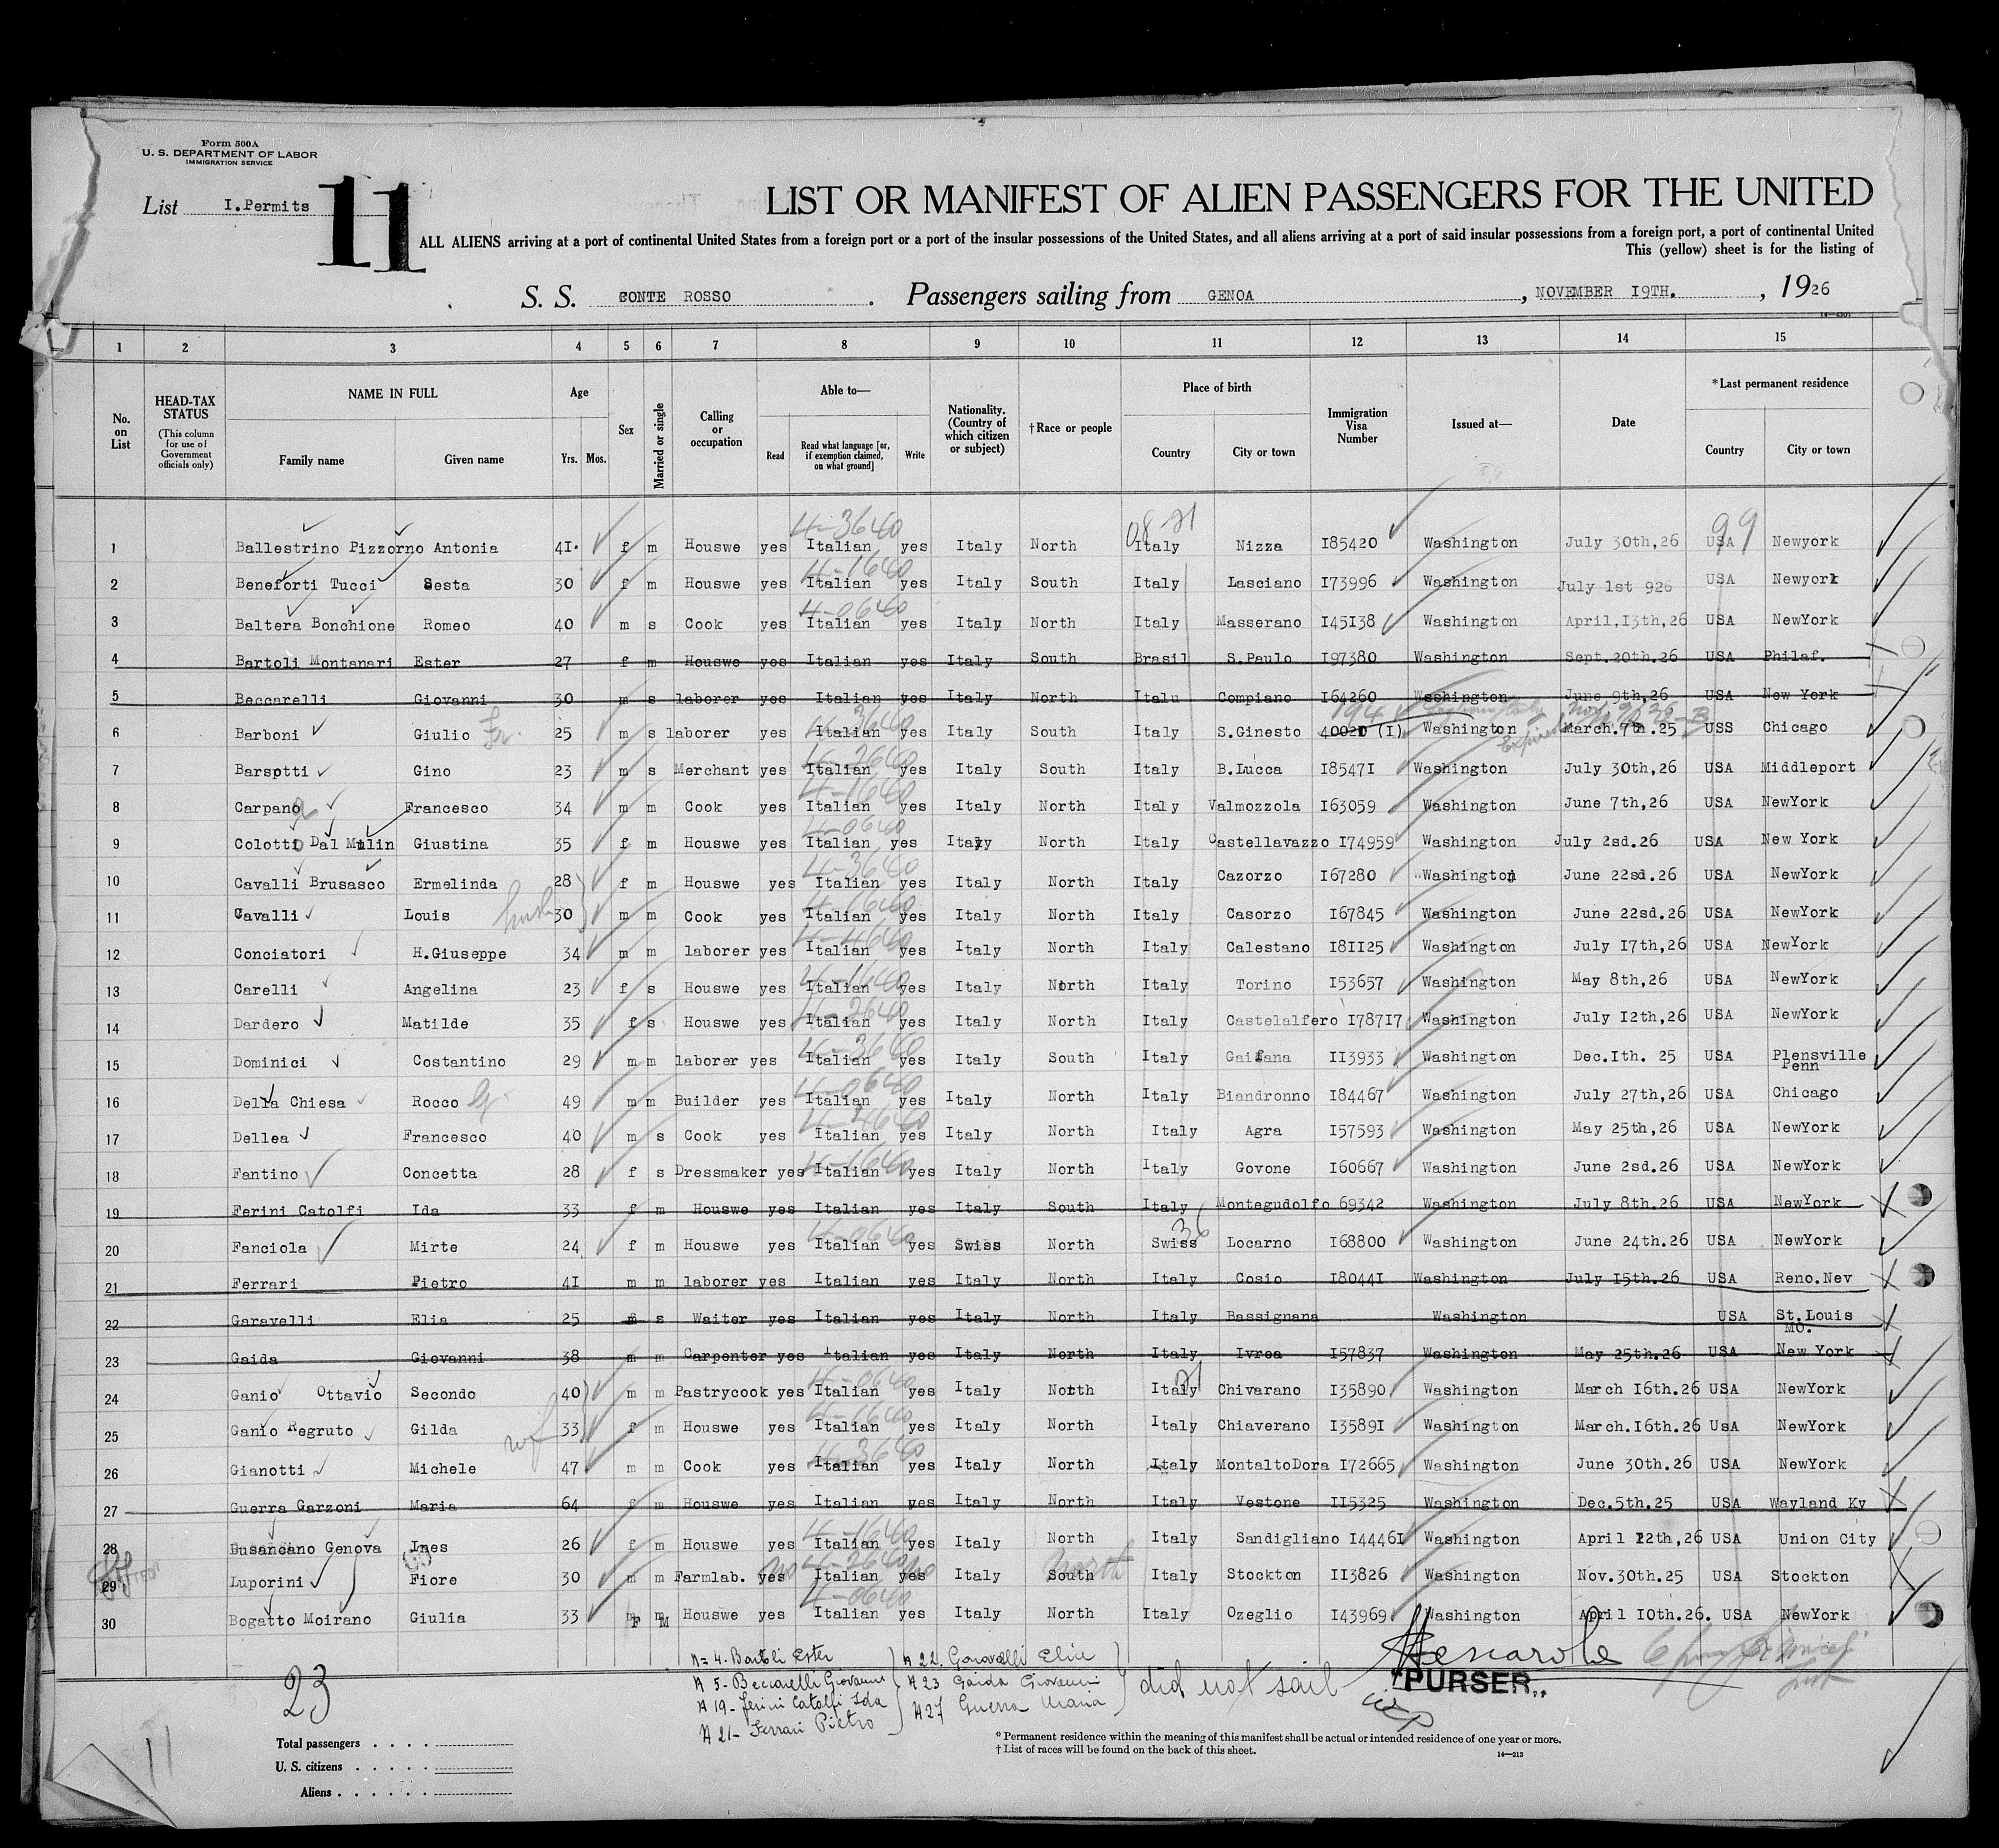 Form 500A
U. S. DEPARTMENT OF LABOR
IMMIGRATION SERVICE
List I.Permits
11
LIST OR MANIFEST OF ALIEN PASSENGERS FOR THE UNITED
ALL ALIENS arriving at a port of continental United States from a foreign port or a port of the insular possessions of the United States, and all aliens arriving at a port of said insular possessions from a foreign port, a port of continental United
This (yellow) sheet is for the listing of
S. S. CONTE ROSSO . Passengers sailing from GENOA , NOVEMBER I9TH. , 1926
1 2 3 4 5 6 7 8 9 10 11 12 13 14 15
No. on List HEAD-TAX STATUS (This column for use of Government officials only) NAME IN FULL Family name Given name Age Yrs. Mos. Sex Married or single Calling or occupation Able to— Read Read what language [or, if exemption claimed, on what ground] Write Nationality. (Country of which citizen or subject) †Race or people Place of birth Country City or town Immigration Visa Number Issued at— Date *Last permanent residence Country City or town
4-3640 08 21 99
1 Ballestrino Pizzorno Antonia 4I. f m Houswe yes Italian yes Italy North Italy Nizza I85420 Washington July 30th,26 USA Newyork
4-1640
2 Beneforti Tucci Sesta 30 f m Houswe yes Italian yes Italy South Italy Lasciano I73996 Washington July 1st 926 USA Newyork
4-0640
3 Baltera Bonchione Romeo 40 m s Cook yes Italian yes Italy North Italy Masserano I45I38 Washington April,I3th,26 USA NewYork
4 Bartoli Montanari Ester 27 f m Houswe yes Italian yes Italy South Brasil S.Paulo I97380 Washington Sept.20th.26 USA Philaf.
5 Beccarelli Giovanni 30 m s laborer yes Italian yes Italy North Italu Compiano I64260 Washington June 9th,26 USA New York
4-3640
6 Barboni Giulio 25 m s laborer yes Italian yes Italy South Italy S.Ginesto 4002I (I) Washington March.7th.25 USS Chicago
4-2640
7 Barsotti Gino 23 m s Merchant yes Italian yes Italy South Italy B.Lucca I8547I Washington July 30th,26 USA Middleport
4-1640
8 Carpano Francesco 34 m m Cook yes Italian yes Italy North Italy Valmozzola I63059 Washington June 7th,26 USA NewYork
4-0640
9 Colotti Dal Mulin Giustina 35 f m Houswe yes Italian yes Italy North Italy Castellavazzo I74959 Washington July 2sd.26 USA New York
4-3640
10 Cavalli Brusasco Ermelinda 28 f m Houswe yes Italian yes Italy North Italy Cazorzo I67280 Washington June 22sd.26 USA NewYork
4-1640
11 Cavalli Louis 30 m m Cook yes Italian yes Italy North Italy Casorzo I67845 Washington June 22sd.26 USA NewYork
4-4640
12 Conciatori H.Giuseppe 34 m m laborer yes Italian yes Italy North Italy Calestano I8II25 Washington July I7th,26 USA NewYork
4-1640
13 Carelli Angelina 23 f s Houswe yes Italian yes Italy North Italy Torino I53657 Washington May 8th,26 USA NewYork
4-2640
14 Dardero Matilde 35 f s Houswe yes Italian yes Italy North Italy Castelalfero I787I7 Washington July I2th,26 USA NewYork
4-3640
15 Dominici Costantino 29 m m laborer yes Italian yes Italy South Italy Gaifana II3933 Washington Dec.Ith. 25 USA Plensville Penn
4-0640
16 Della Chiesa Rocco 49 m m Builder yes Italian yes Italy North Italy Biandronno I84467 Washington July 27th,26 USA Chicago
4-4640
17 Dellea Francesco 40 m s Cook yes Italian yes Italy North Italy Agra I57593 Washington May 25th,26 USA NewYork
4-1640
18 Fantino Concetta 28 f s Dressmaker yes Italian yes Italy North Italy Govone I60667 Washington June 2sd.26 USA NewYork
19 Ferini Catolfi Ida 33 f m Houswe yes Italian yes Italy South Italy Montegudolfo 69342 Washington July 8th.26 USA NewYork
4-0640 36
20 Fanciola Mirte 24 f m Houswe yes Italian yes Swiss North Swiss Locarno I68800 Washington June 24th.26 USA NewYork
21 Ferrari Pietro 4I m m laborer yes Italian yes Italy North Italy Cosio I8044I Washington July I5th.26 USA Reno.Nev
22 Garavelli Elia 25 m s Waiter yes Italian yes Italy North Italy Bassignana Washington USA St.Louis MO.
23 Gaida Giovanni 38 m m Carpenter yes Italian yes Italy North Italy Ivrea I57837 Washington May 25th.26 USA New York
4-0640 21
24 Ganio Ottavio Secondo 40 m m Pastrycook yes Italian yes Italy North Italy Chivarano I35890 Washington March I6th.26 USA NewYork
4-1640
25 Ganio Regruto Gilda wf 33 f m Houswe yes Italian yes Italy North Italy Chiaverano I3589I Washington March.I6th.26 UsA NewYork
4-3640
26 Gianotti Michele 47 m m Cook yes Italian yes Italy North Italy MontaltoDora I72665 Washington June 30th.26 USA NewYork
27 Guerra Garzoni Maria 64 f m Houswe yes Italian yes Italy North Italy Vestone II5325 Washington Dec.5th.25 USA Wayland Ky
4-1640
28 Busancano Genova Ines 26 f m Houswe yes Italian yes Italy North Italy Sandigliano I4446I Washington April I2th,26 USA Union City
4-2640
29 Luporini Fiore 30 m m Farmlab. yes no Italian yes no Italy South North Italy Stockton II3826 Washington Nov.30th.25 USA Stockton
4-0640
30 Bogatto Moirano Giulia 33 F M Houswe yes Italian yes Italy North Italy Ozeglio I43969 Washington April I0th.26. USA NewYork
23
N= 4. Bartoli Ester
5 - Beccarelli Giovanni
19 - Ferini Catolfi Ida
21 - Ferrari Pietro
22. Garavelli Elia
23 Gaida Giovanni
27 Guerra Maria
did not sail
PURSER.
11
Total passengers
U. S. citizens
Aliens
* Permanent residence within the meaning of this manifest shall be actual or intended residence of one year or more.
† List of races will be found on the back of this sheet.
14—213